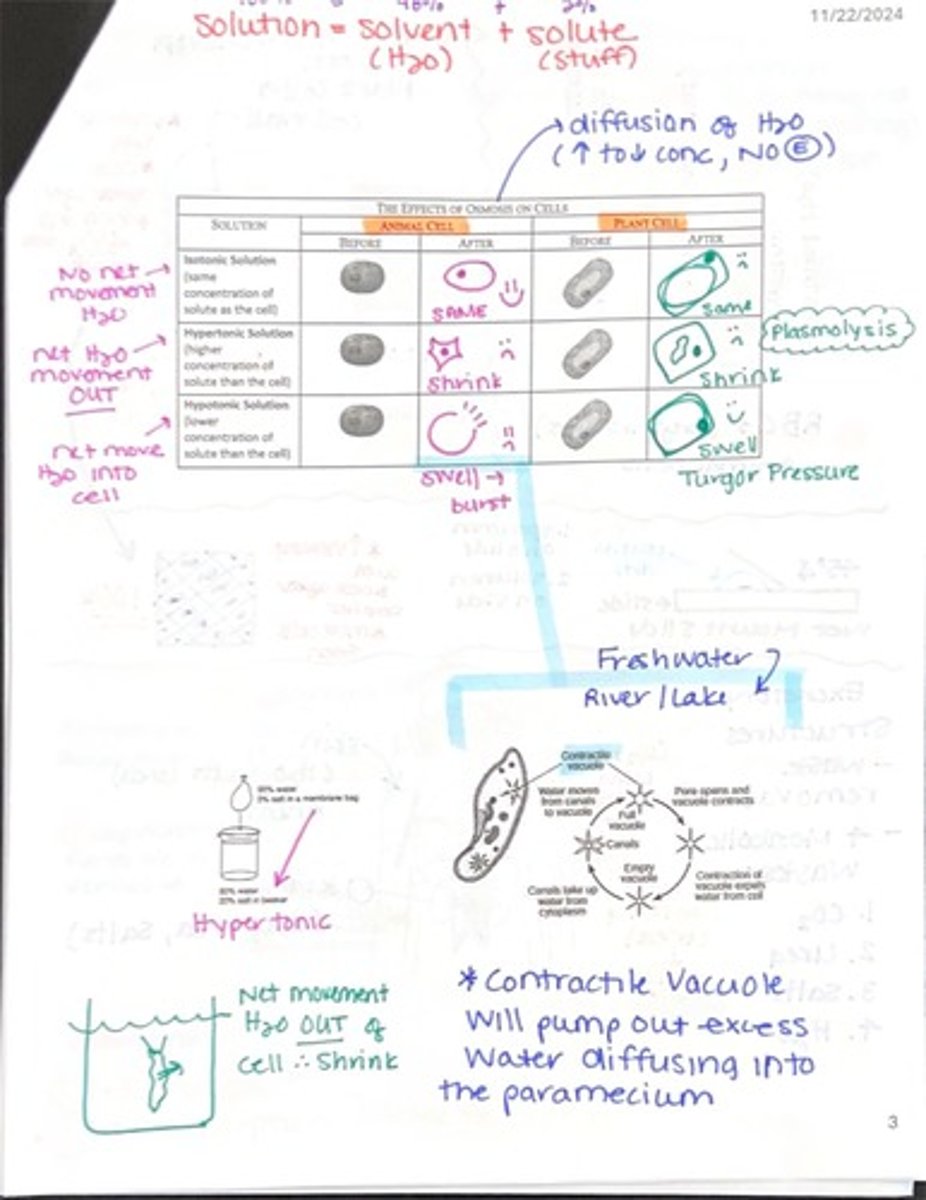 11/22/2024
Solution = Solvent + Solute
(H₂O) (Stuff)
→ diffusion of H₂O
(↑ to ↓ conc, NO Ⓔ)
THE EFFECTS OF OSMOSIS ON CELLS
SOLUTION ANIMAL CELL PLANT CELL
BEFORE AFTER BEFORE AFTER
No net → movement H₂O
Isotonic Solution
(same
concentration of
solute as the cell)
SAME
Same
net H₂O → movement OUT
Hypertonic Solution
(higher
concentration of
solute than the cell)
Shrink
Shrink
Plasmolysis
net move H₂O INTO cell
Hypotonic Solution
(lower
concentration of
solute than the cell)
Swell →
burst
Swell
Turgor Pressure
Freshwater
River / Lake
Contractile
vacuole
Water moves
from canals
to vacuole
Full
vacuole
Pore opens and
vacuole contracts
Canals
Empty
vacuole
Canals take up
water from
cytoplasm
Contraction of
vacuole expels
water from cell
Hypertonic
Net movement
H₂O OUT of
cell ∴ Shrink
*Contractile Vacuole
Will pump out excess
Water diffusing into
the paramecium
3